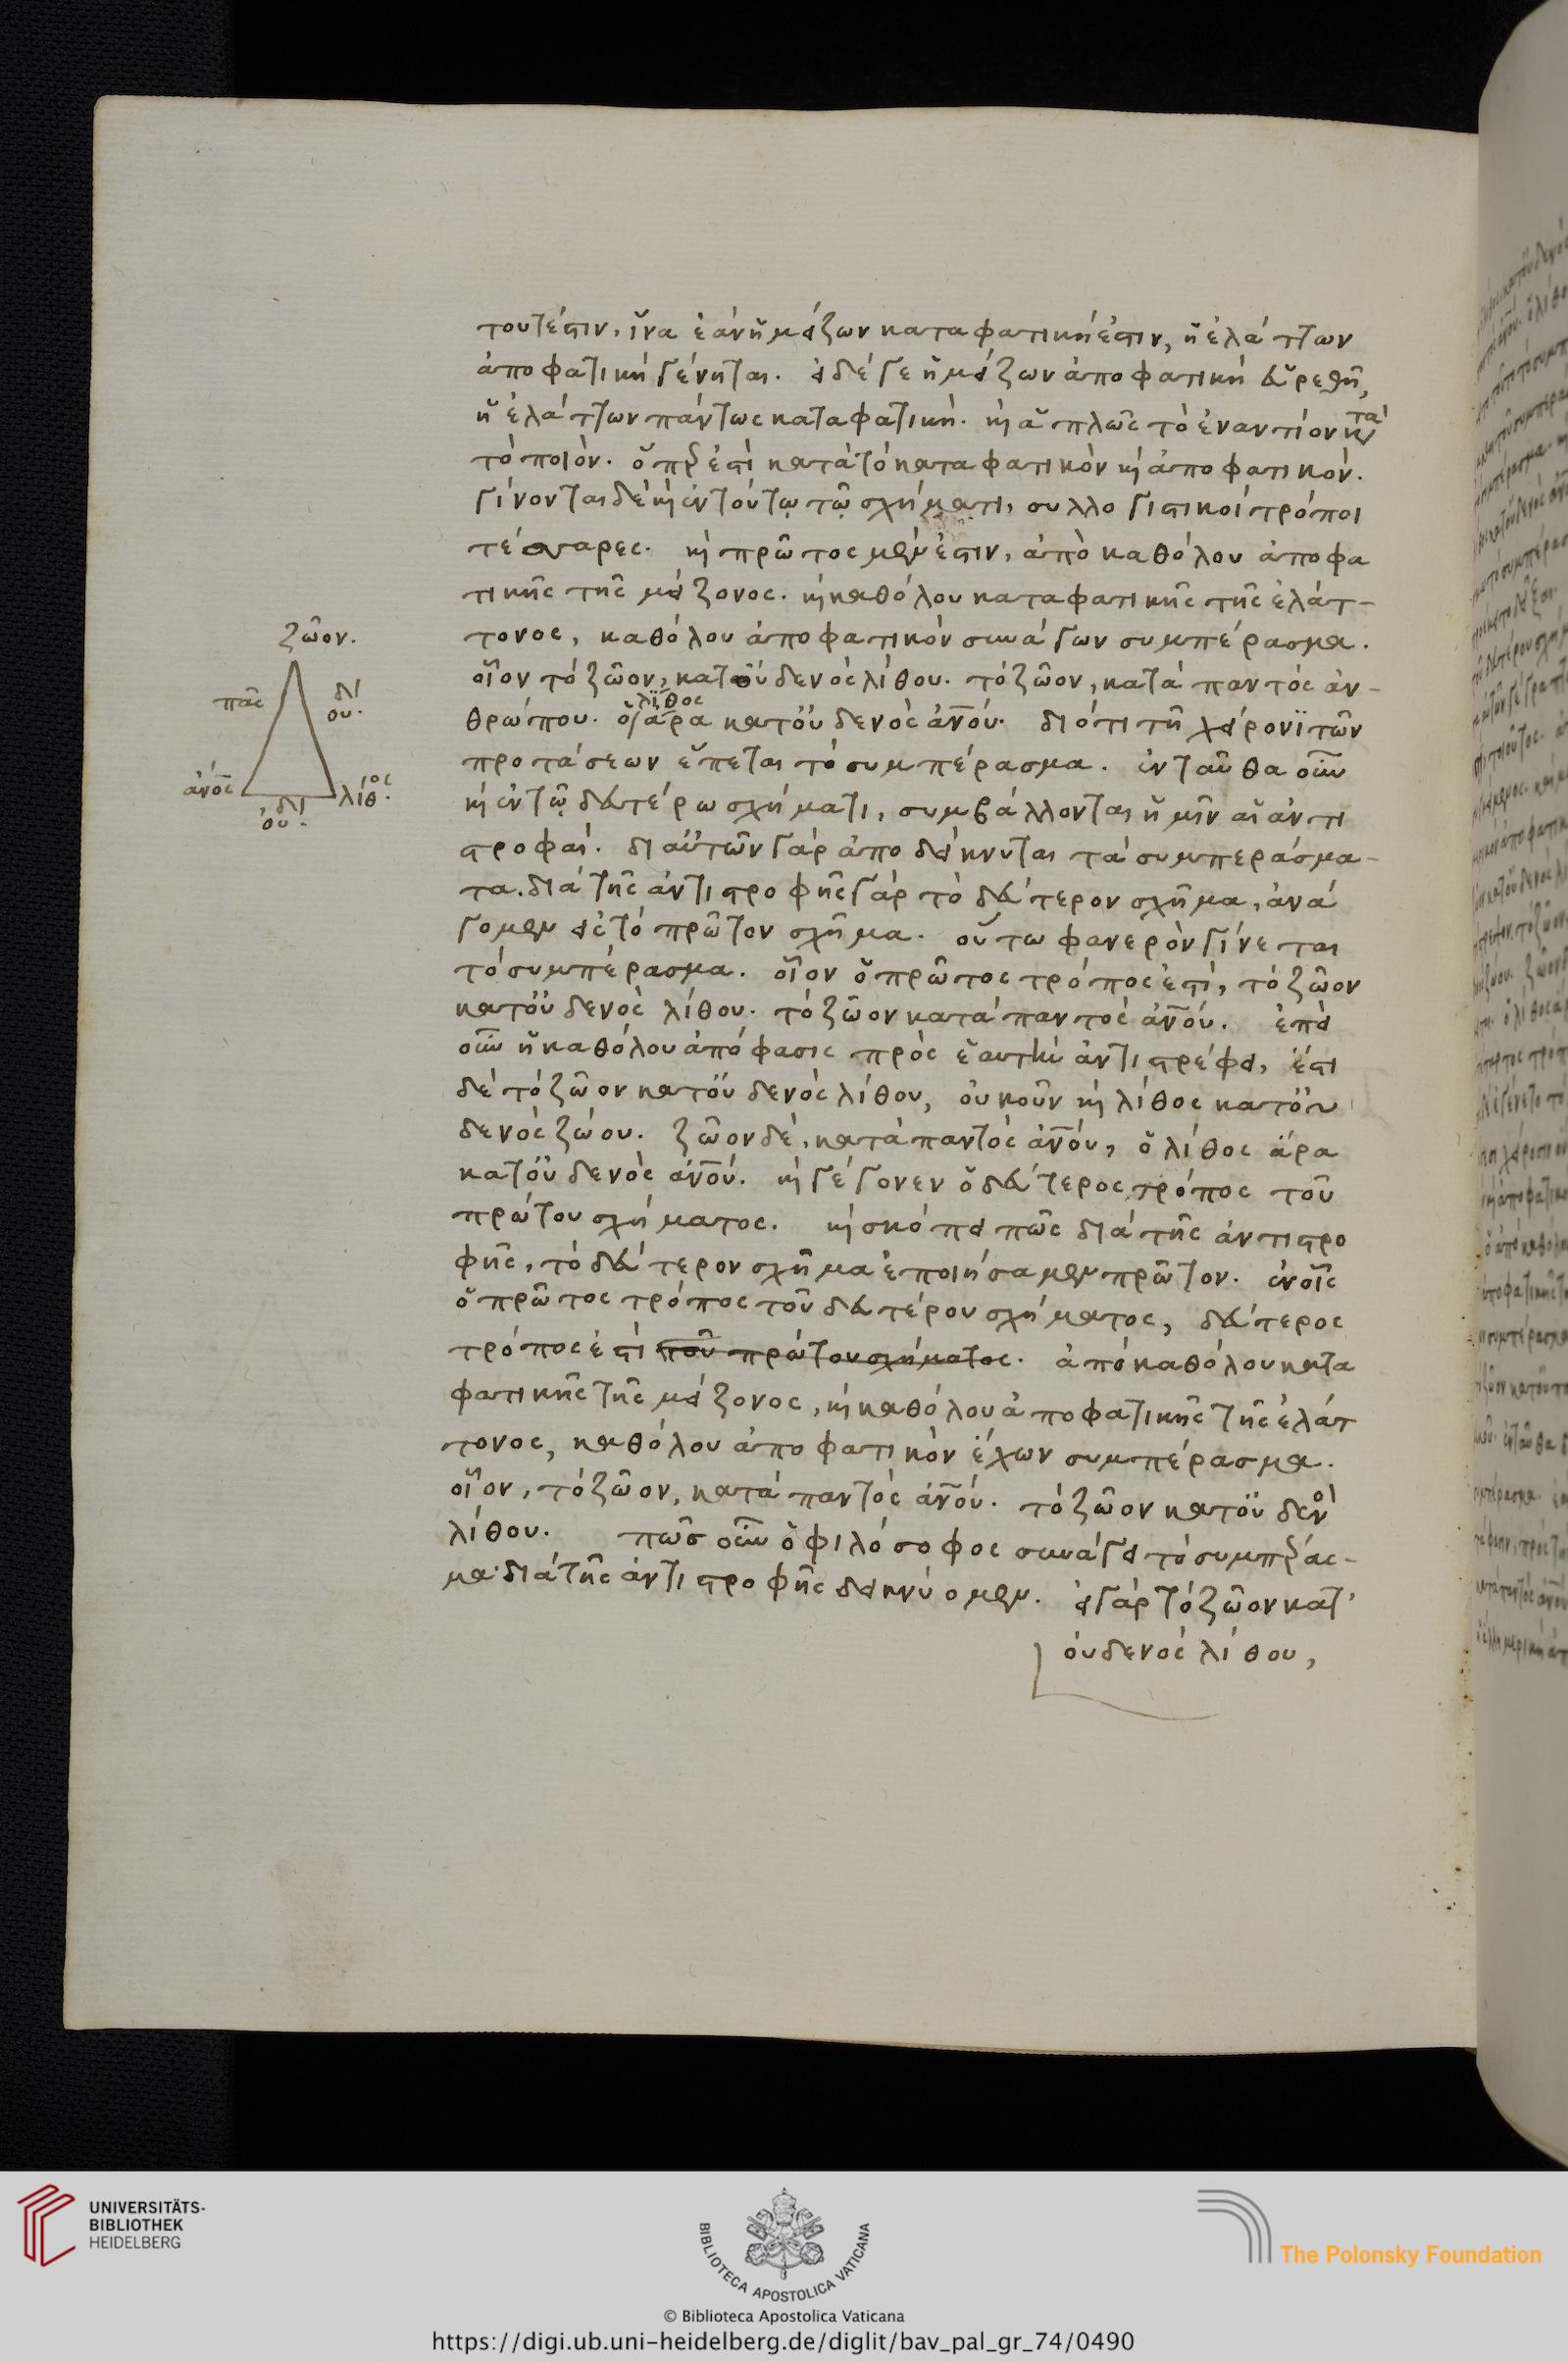 τουτέστιν, ἵνα ἐὰν ἡ μείζων καταφατική ἐστιν, ἡ ἐλάττων
ἀποφατικὴ γένηται. εἰ δέ γε ἡ μείζων ἀποφατικὴ εὑρεθῆ,
ἡ ἐλάττων πάντως καταφατική. καὶ ἁπλῶς τὸ ἐναντίον κατὰ
τὸ ποιὸν. ὅπερ ἐστὶ κατὰ τὸ καταφατικὸν καὶ ἀποφατικόν.
γίνονται δὲ καὶ ἐν τούτῳ τῷ σχήματι, συλλογιστικοὶ τρόποι
τέσσαρες. καὶ πρῶτος μέν ἐστιν, ἀπὸ καθόλου ἀποφα
τικῆς τῆς μείζονος. καὶ καθόλου καταφατικῆς τῆς ἐλάτ-
τονος, καθόλου ἀποφατικὸν συνάγων συμπέρασμα.
οἷον τὸ ζῶον, κατ οὐδενὸς λίθου. τὸ ζῶον, κατὰ παντὸς ἀν-
θρώπου. ὁ λίθος ἄρα κατ οὐδενὸς ἀνου. διότι τῆ χείρονι τῶν
προτάσεων ἕπεται τὸ συμπέρασμα. ἐνταῦθα οὖν
καὶ ἐν τῷ δευτέρω σχήματι, συμβάλλονται ἡμῖν αἱ ἀντι
στροφαί. δι αὐτῶν γὰρ ἀποδείκνυται τὰ συμπεράσμα-
τα. διὰ τῆς ἀντιστροφῆς γὰρ τὸ δεύτερον σχῆμα, ἀνά
γομεν εἰς τὸ πρῶτον σχῆμα. οὕτω φανερὸν γίνεται
τὸ συμπέρασμα. οἷον ὁ πρῶτος τρόπος ἐστὶ, τὸ ζῶον
κατ οὐδενὸς λίθου. τὸ ζῶον κατὰ παντὸς ἀνου. ἐπεὶ
οὖν ἡ καθόλου ἀπόφασις πρὸς ἑαυτὴν ἀντιστρέφει, ἔστι
δὲ τὸ ζῶον κατ οὐδενὸς λίθου, οὐκοῦν καὶ λίθος κατ οὐ
δενὸς ζώου. ζῶον δὲ, κατὰ παντὸς ἀνου, ὁ λίθος ἄρα
κατ οὐδενὸς ἀνου. καὶ γέγονεν ὁ δεύτερος τρόπος τοῦ
πρώτου σχήματος. καὶ σκόπει πῶς διὰ τῆς ἀντιστρο
φῆς, τὸ δεύτερον σχῆμα ἐποιήσαμεν πρῶτον. ἐν οἷς
ὁ πρῶτος τρόπος τοῦ δευτέρου σχήματος, δεύτερος
τρόπος ἐστὶ τοῦ πρώτου σχήματος. ἀπὸ καθόλου κατα
φατικῆς τῆς μείζονος, καὶ καθόλου ἀποφατικῆς τῆς ἐλάτ
τονος, καθόλου ἀποφατικὸν ἔχων συμπέρασμα.
οἷον, τὸ ζῶον, κατὰ παντὸς ἀνου. τὸ ζῶον κατ οὐδενὸ
λίθου. πῶς οὖν ὁ φιλόσοφος συνάγει τὸ συμπέρασ-
μα διὰ τῆς ἀντιστροφῆς δεικνύομεν. εἰ γὰρ τὸ ζῶον κατ'
οὐδενὸς λίθου,
ζῶον.
πᾶς
δὶ
ου.
ἀνος
λίθος.
οὐ δὶ.
UNIVERSITÄTS-
BIBLIOTHEK
HEIDELBERG
BIBLIOTECA APOSTOLICA VATICANA
The Polonsky Foundation
© Biblioteca Apostolica Vaticana
https://digi.ub.uni-heidelberg.de/diglit/bav_pal_gr_74/0490